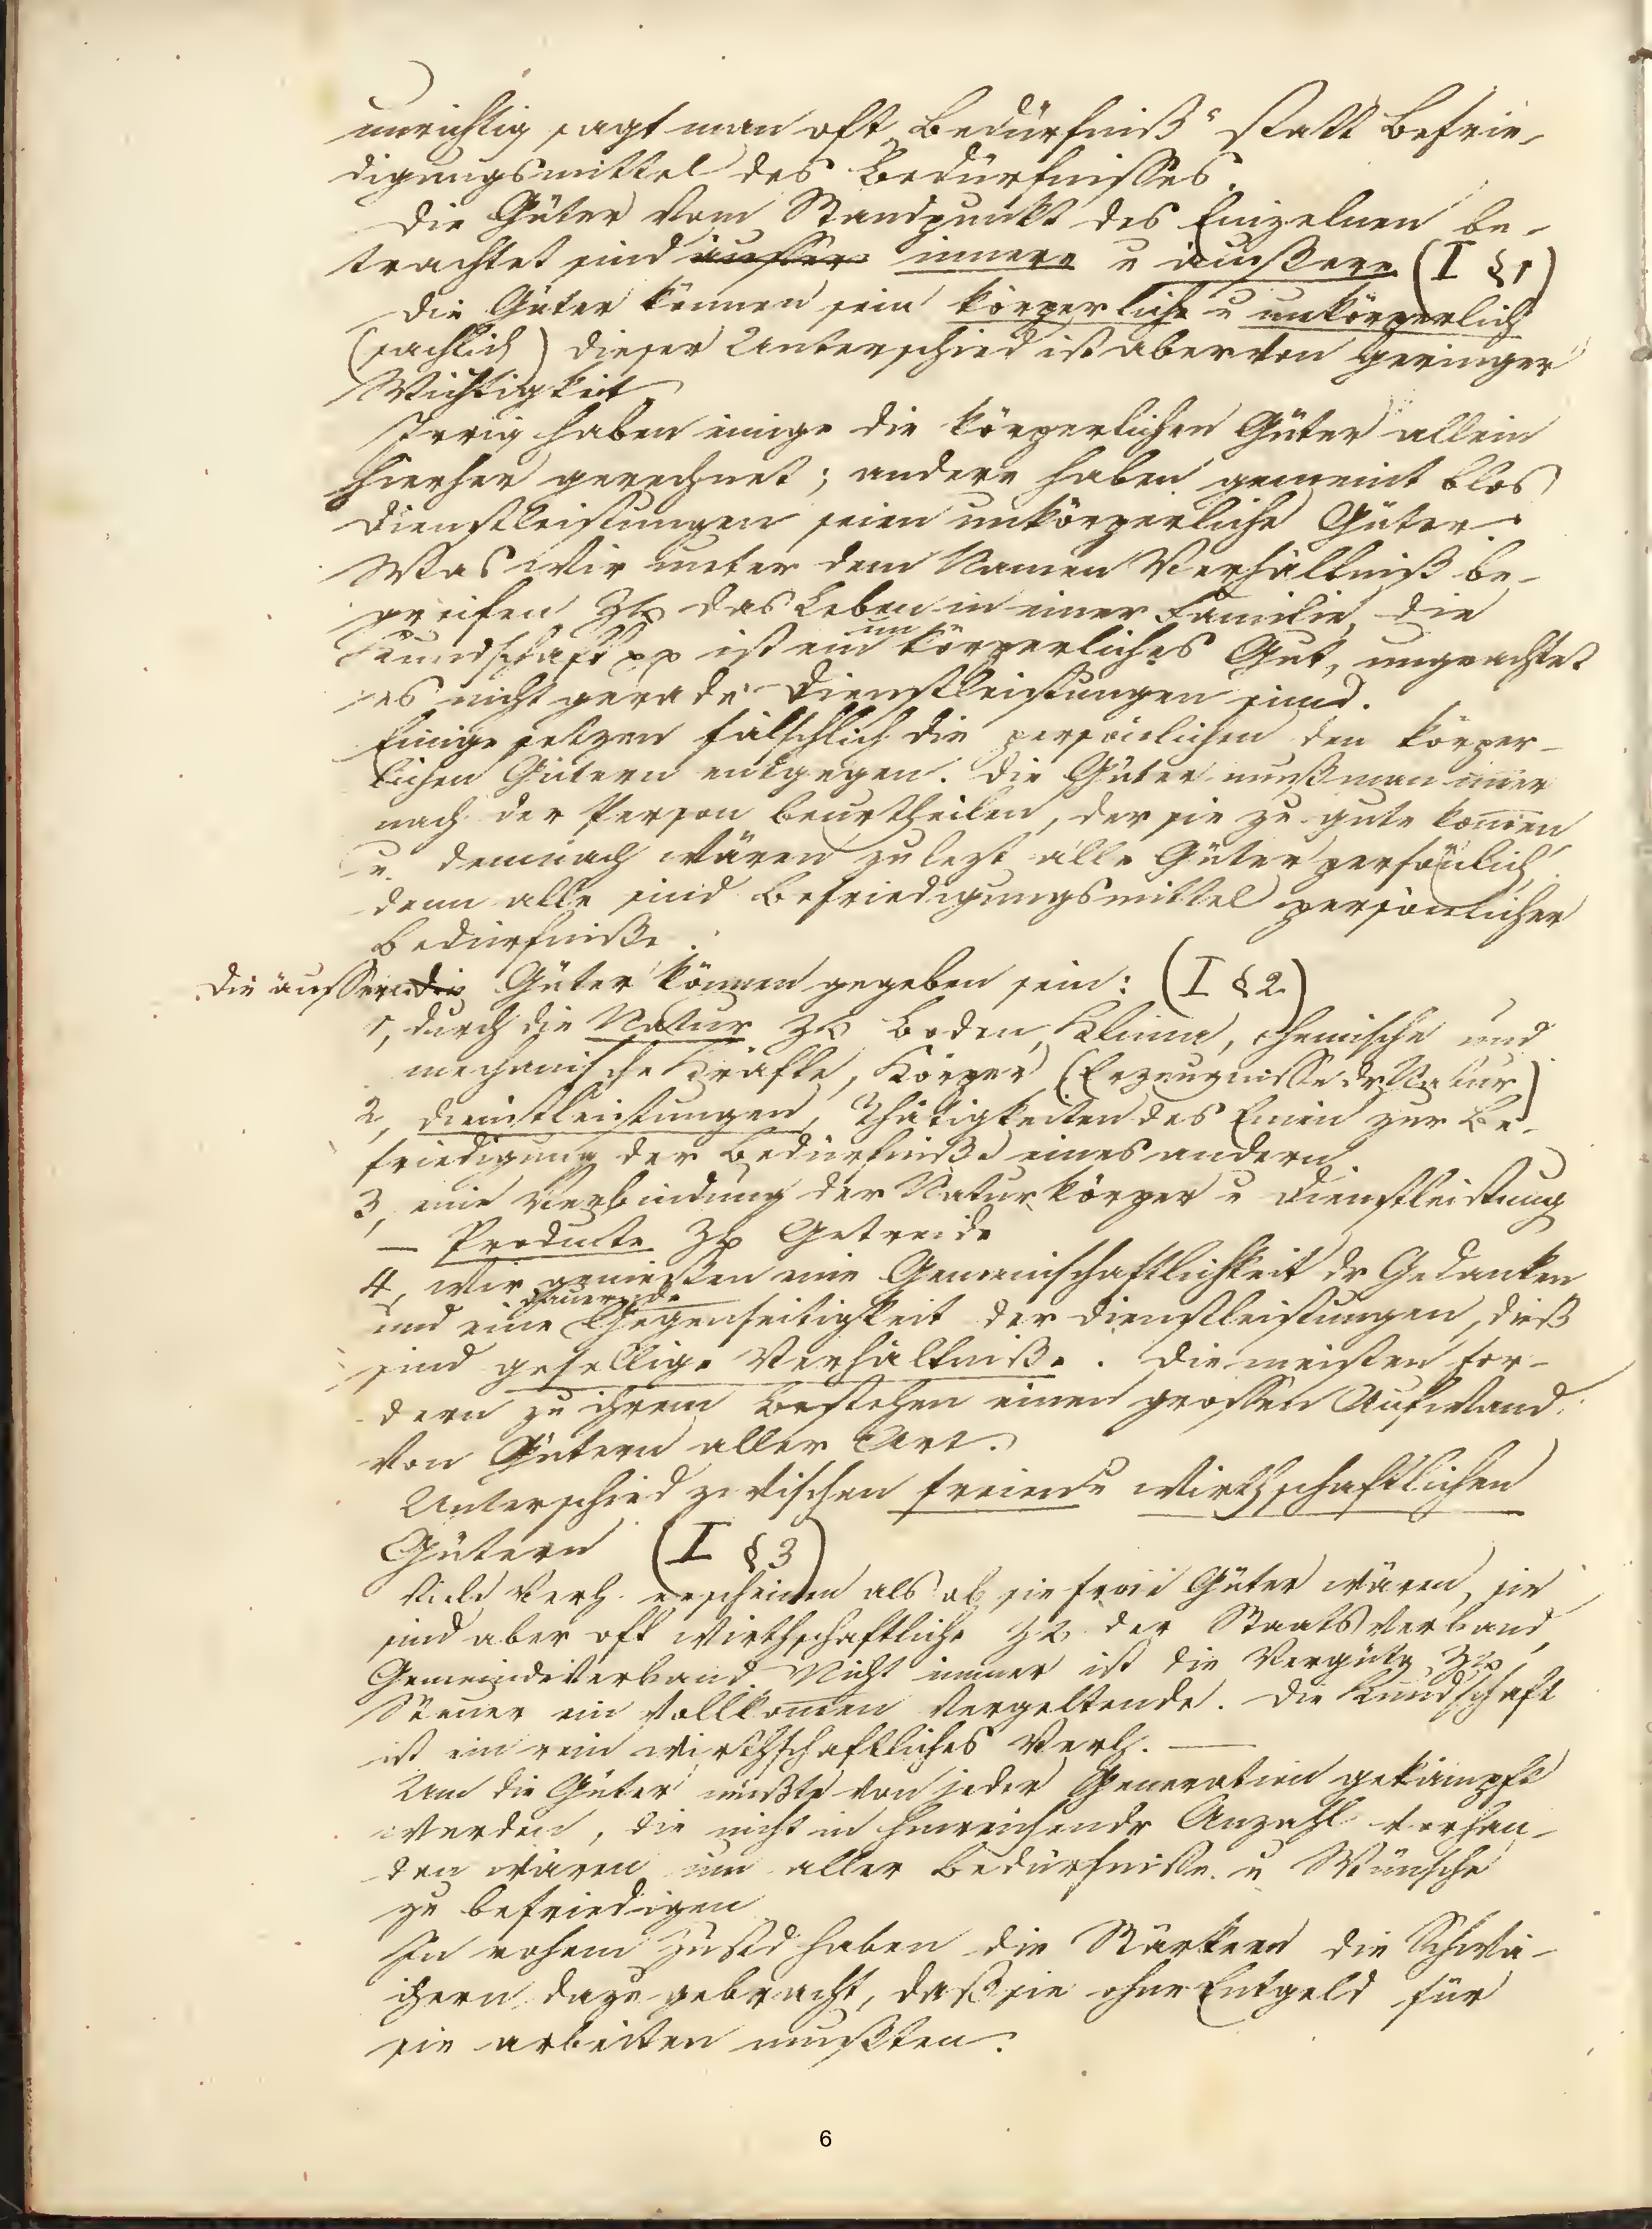 unrichtig sagt man oft „Bedürfniß“ statt Befrie-
digungsmittel des Bedürfnisses.
Die Güter vom Standpunkt des Einzelnen be-
trachtet sind äusser innere u äußere (I §1)
Die Güter können sein körperliche u unkörperlich
(sachlich) dieser Unterschied ist aber von geringer
Wichtigkeit.
Irrig haben einige die körperlichen Güter allein
hierher gerechnet; andere haben gemeint blos
Dienstleistungen seien unkörperliche Güter.
Was wir unter dem Namen Verhältniß be-
greifen zB das Leben in einer Familie, die
Kundschaft pp ist ein unkörperliches Gut, ungeachtet
es nicht gerade Dienstleistungen sind.
Einige setzen fälschlich die persönlichen den körper-
lichen Gütern entgegen. Die Güter muß man imer
nach der Person beurtheilen, der sie zu gute komen
u. demnach wären zulezt alle Güter persönlich,
denn alle sind Befriedigungsmittel persönlicher
Bedürfniße.
Die äusseren die Güter können gegeben sein: (I §2)
1, durch die Natur zB Boden, Klima, chemische und
mechanische Kräfte, Körper (Erzeugnisse dr Natur)
2, Dienstleistungen, Thätigkeiten des Einen zur Be-
friedigung der Bedürfniße eines andern.
3, eine Verbindung der Naturkörper u Dienstleistung
— Producte zB Getreide
4, Wir genießen eine Gemeinschaftlichkeit dr Gedanken
und eine dauernde Gegenseitigkeit der Dienstleistungen, dieß
sind gesellige Verhältniße. Die meisten for-
dern zu ihrem Bestehen einen grossen Aufwand
von Gütern aller Art.
Unterschied zwischen freien u wirthschaftlichen
Gütern (I §3)
Viele Verh. erscheinen als ob sie freie Güter wären, sie
sind aber oft wirthschaftliche zB der Staatsverband,
Gemeindeverband. Nicht immer ist die Vergütg zB
Steuer ein vollkomen vergeltende. Die Kundschaft
ist ein rein wirthschaftliches Verh. —
Um die Güter müßte von jeder Generation gekämpft
werden, die nicht in hinreichender Anzahl vorhan-
den wären um aller Bedürfnisse u Wünsche
zu befriedigen
In rohem Zustd haben die Stärkern die Schwä-
chern dazu gebracht, daß sie ohne Entgeld für
sie arbeiten mußten.
6